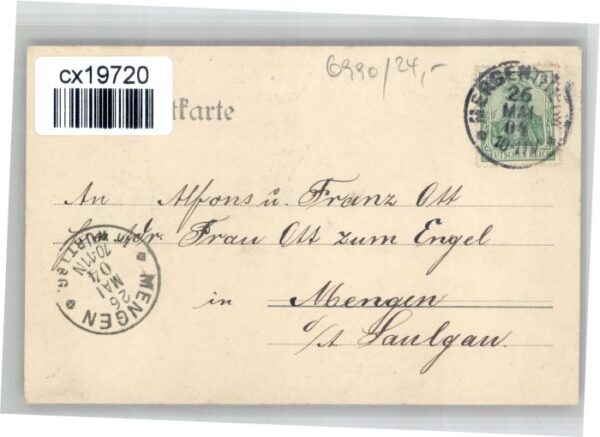 cx19720
6990/24,-
tkarte
MENGEN
26
MAI
04
10-11N
DEUTSCHES REICH
An Alfons u. Franz Ott
Frau Ott zum Engel
in Mengen
o/A Saulgau.
MENGEN
26
MAI
04
10-11N
WÜRTTBG.